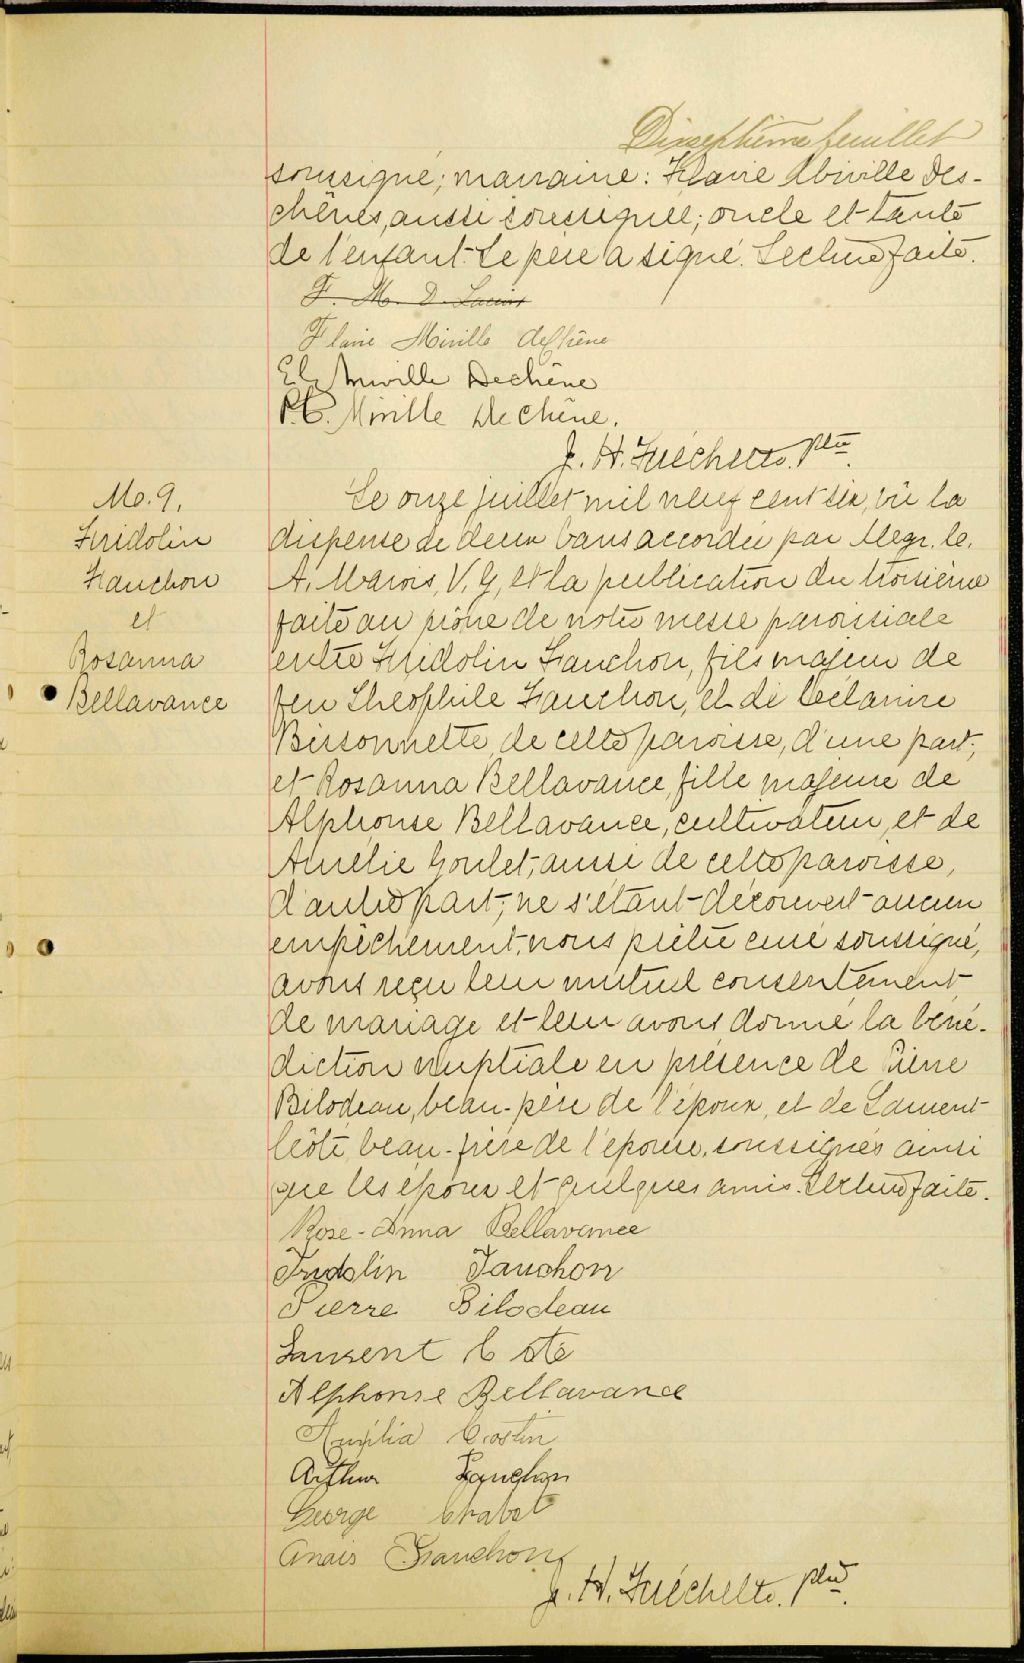 Dixseptième feuillet
sousigné; marraine: Flavie Miville Des-
chênes, aussi soussignée; oncle et tante
de l'enfant. Le père a signé. Lecture faite.
F. M. D.
Flavie Miville deChêne
El. Miville Dechêne
P.C. Miville De chêne.
J. H. Fréchette. Ptre.
M. 9.
Fridolin
Fauchon
et
Rosanna
Bellavance
Le onze juillet mil neuf cent six, vu la
dispense de deux bans accordée par Megr. C.
A. Marois, V. G, et la publication du troisième
faite au prône de notre messe paroissiale
entre Fridolin Fauchon, fils majeur de
feu Théophile Fauchon, et de Célanire
Bissonnette, de cette paroisse, d'une part;
et Rosanna Bellavance, fille majeure de
Alphonse Bellavance, cultivateur, et de
Amélie Goulet, aussi de cette paroisse,
d'autre part; ne s'étant découvert aucun
empêchement, nous prêtre curé soussigné,
avons reçu leur mutuel consentement
de mariage et leur avons donné la béné-
diction nuptiale en présence de Pierre
Bilodeau, beau-père de l'époux, et de Laurent
Côté, beau-frère de l'épouse, soussignés ainsi
que les époux et quelques amis. Lecture faite.
Rose-Anna Bellavance
Fridolin Fauchon
Pierre Bilodeau
Laurent Coté
Alphonse Bellavance
Amélia Costin
Arthur Fauchon
George Chabot
Anaïs Fauchon
J. H. Fréchette. ptre.